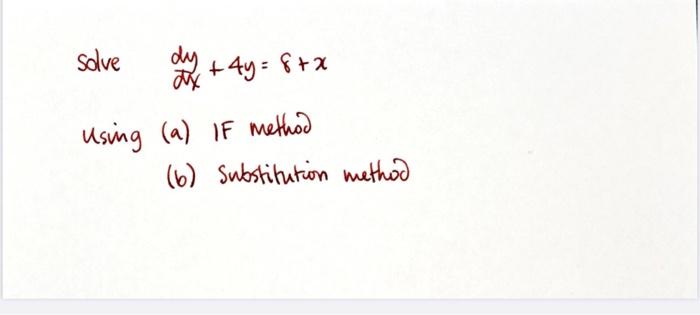 Solve dy/dx + 4y = 8 + x
Using (a) IF method
(b) Substitution method